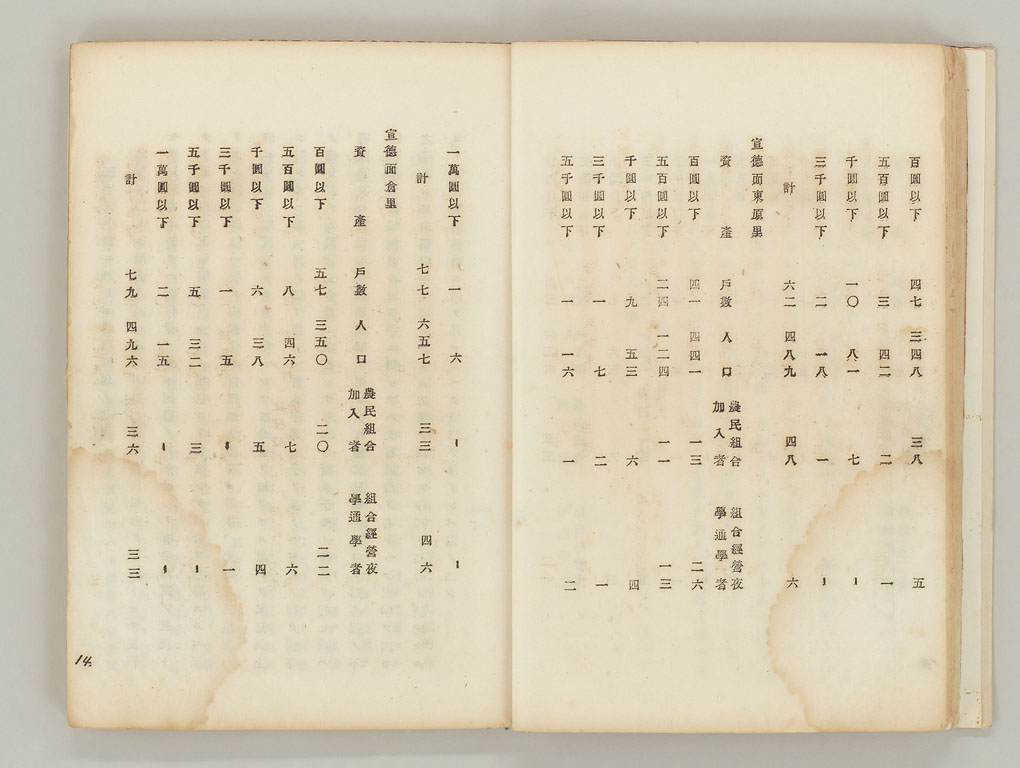 百圓以下 四七 三四八 三八 五
五百圓以下 三 四二 二 一
千圓以下 一〇 八一 七 ー
三千圓以下 二 一八 一 ー
計 六二 四八九 四八 六
宣德面東原里
資產 戶數 人口 農民組合加入者 組合經營夜學通學者
百圓以下 四一 四四一 一三 二六
五百圓以下 二四 一二四 一一 一三
千圓以下 九 五三 六 四
三千圓以下 一 七 二 一
五千圓以下 一 一六 一 二
一萬圓以下 一 六 ー ー
計 七七 六五七 三三 四六
宣德面倉里
資產 戶數 人口 農民組合加入者 組合經營夜學通學者
百圓以下 五七 三五〇 二〇 二二
五百圓以下 八 四六 七 六
千圓以下 六 三八 五 四
三千圓以下 一 五 ー 一
五千圓以下 五 三二 三 ー
一萬圓以下 二 一五 ー ー
計 七九 四九六 三六 三三
14.